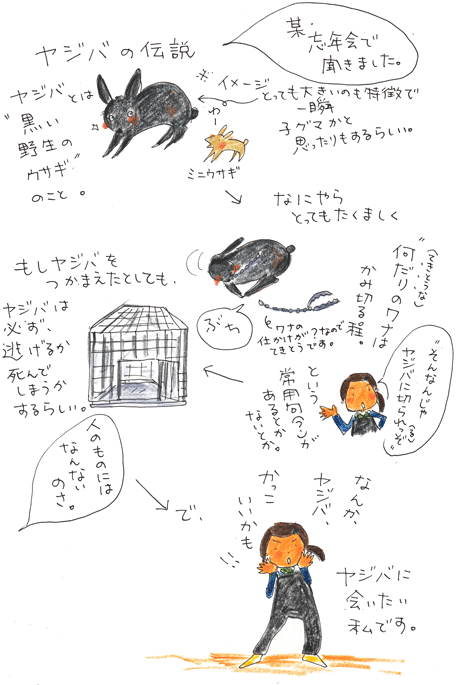 ヤジバの伝説
某・忘年会で
聞きました。
ヤジバとは
"黒い
野生の
ウサギ"
のこと。
※イメージ
とっても大きいのも特徴で
一瞬
子グマかと
思ったりもするらしい。
わー
ミニウサギ
なにやら
とってもたくましく
(てきとうな)
"何だりのワナは
かみ切る程。
ぶち
ワナの
仕かけが
てきとうです。
"そんなんじゃ
ヤジバに切られっぞ"
(る)
という
常用句(?)が
あるとか
ないとか。
もしヤジバを
つかまえたとしても、
ヤジバは
必ず、
逃げるか
死んで
しまうか
するらしい。
人のものには
なんない
のさ。
で、
なんか、
ヤジバ、
かっこ
いいかも
ヤジバに
会いたい
私です。